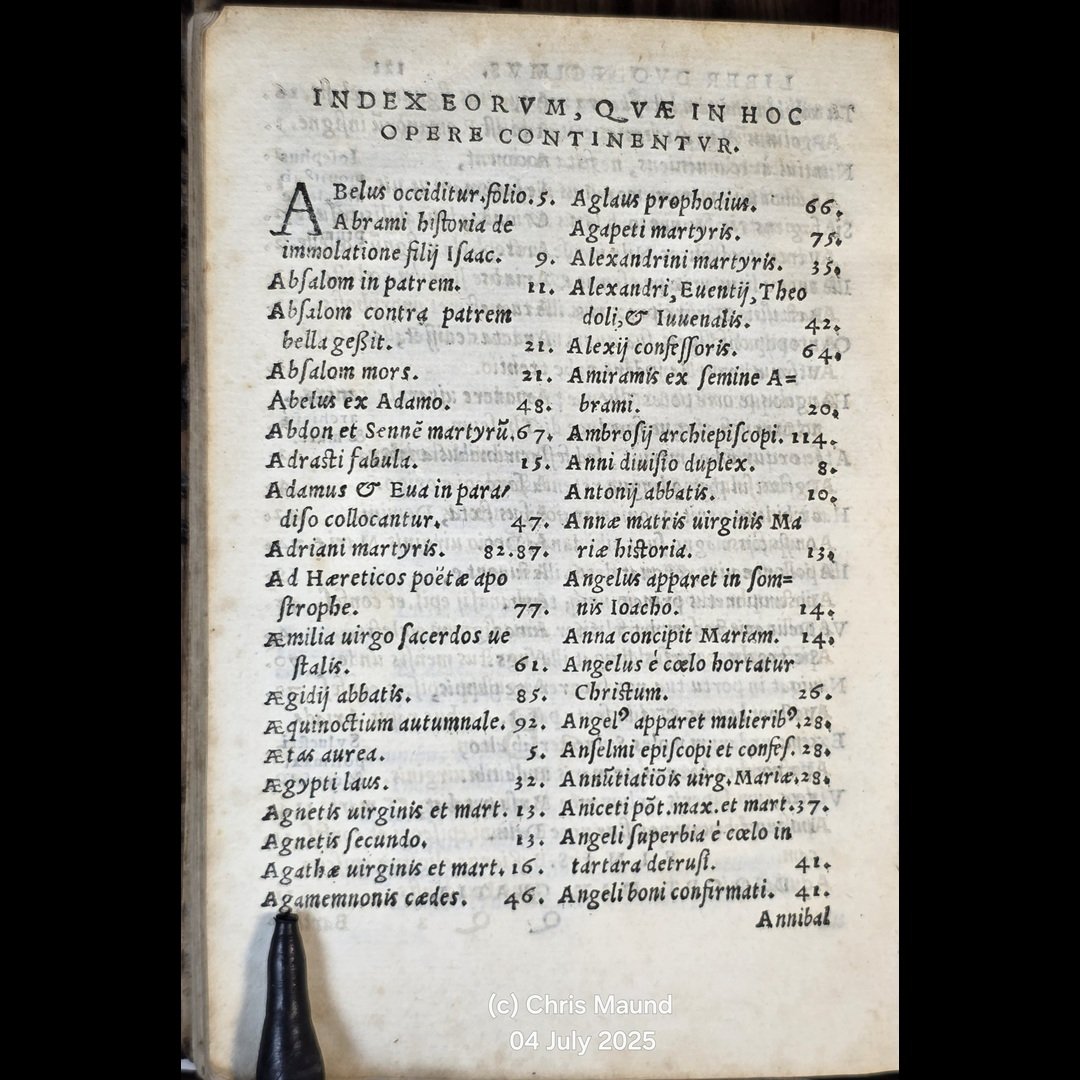 INDEX EORVM, QVÆ IN HOC
OPERE CONTINENTVR.
ABelus occiditur.folio. 5.
Abrami hiſtoria de
immolatione filij Iſaac. 9.
Abſalom in patrem. 11.
Abſalom contra patrem
bella geßit. 21.
Abſalom mors. 21.
Abelus ex Adamo. 48.
Abdon et Sennē martyrū. 67.
Adraſti fabula. 15.
Adamus & Eua in para/
diſo collocantur. 47.
Adriani martyris. 82.87.
Ad Hæreticos poëtæ apo
ſtrophe. 77.
Æmilia uirgo ſacerdos ue
ſtalis. 61.
Ægidij abbatis. 85.
Æquinoctium autumnale. 92.
Ætas aurea. 5.
Ægypti laus. 32.
Agnetis uirginis et mart. 13.
Agnetis ſecundo. 13.
Agathæ uirginis et mart. 16.
Agamemnonis cædes. 46.
Aglaus prophodius. 66.
Agapeti martyris. 75.
Alexandrini martyris. 35.
Alexandri, Euentij, Theo
doli, & Iuuenalis. 42.
Alexij confeſſoris. 64.
Amiramis ex ſemine A=
brami. 20.
Ambroſij archiepiſcopi. 114.
Anni diuiſio duplex. 8.
Antonij abbatis. 10.
Annæ matris uirginis Ma
riæ hiſtoria. 13.
Angelus apparet in ſom=
nis Ioacho. 14.
Anna concipit Mariam. 14.
Angelus è cœlo hortatur
Chriſtum. 26.
Angelꝰ apparet mulieribꝰ. 28.
Anſelmi epiſcopi et confeſ. 28.
Annūtiatiōis uirg. Mariæ. 28.
Aniceti pōt. max. et mart. 37.
Angeli ſuperbia è cœlo in
tartara detruſi. 41.
Angeli boni confirmati. 41.
Annibal
(c) Chris Maund
04 July 2025